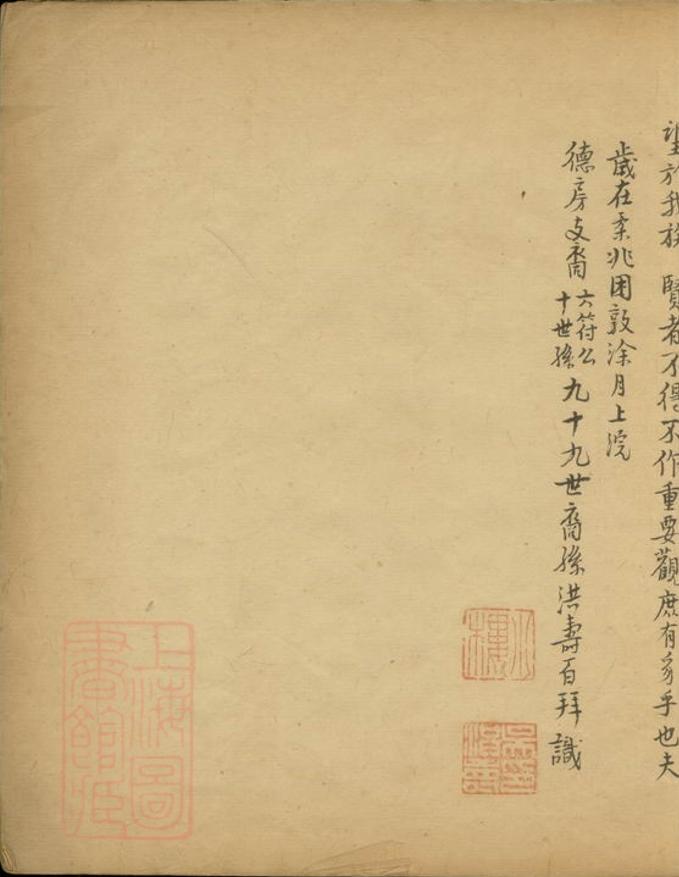 望於我族　賢者不得不作重要觀庶有豸乎也夫
歲在柔兆困敦涂月上浣
德房支裔六符公十世孫九十九世裔孫洪壽百拜識
小樓
上海圖書館藏